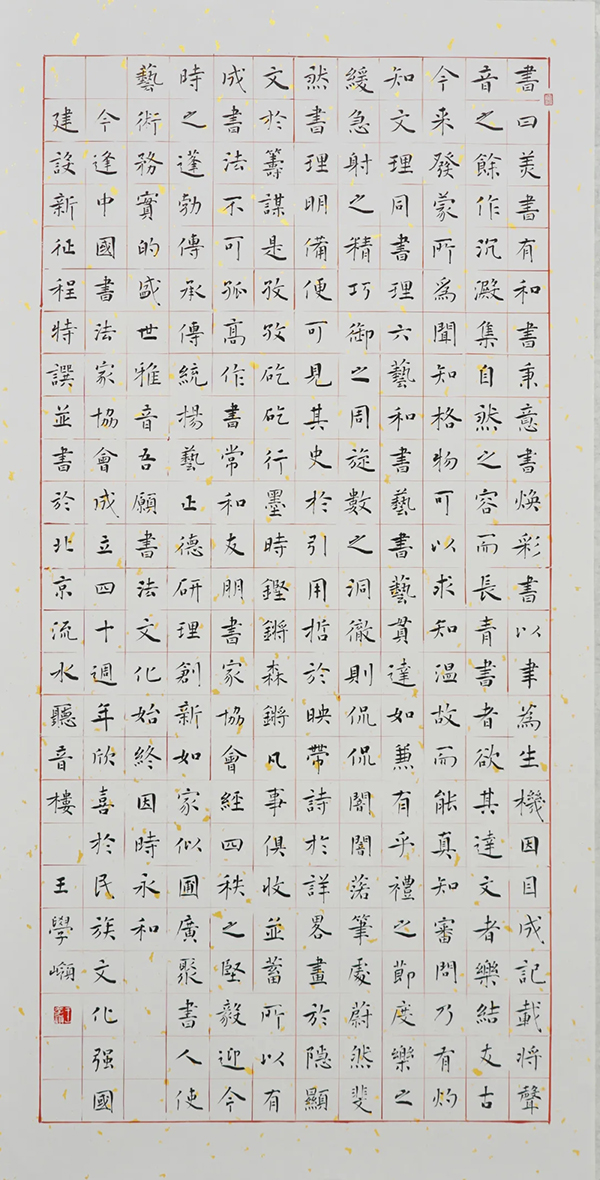 書曰美書有和書秉意書煥彩書以聿為生機因目成記載將聲
音之餘作沉澱集自然之容而長青書者欲其達文者樂結友古
今来發蒙所為聞知格物可以求知溫故而能真知審問乃有灼
知文理同書理六藝和書藝書藝貫達如兼有乎禮之節度樂之
緩急射之精巧御之周旋數之洞徹則侃侃誾誾落筆處蔚然斐
然書理明備便可見其史於引用哲於映帶詩於詳畧畫於隱顯
文於籌謀是孜孜矻矻行墨時鏗鏘森鏘凡事俱收並蓄所以有
成書法不可孤高作書常和友朋書家協會經四秩之堅毅迎今
時之蓬勃傳承傳統揚藝正德研理創新如家似圃廣聚書人使
藝術務實的盛世雅音吾願書法文化始終因時永和
今逢中國書法家協會成立四十週年欣喜於民族文化强國
建設新征程特譔並書於北京流水聽音樓 王學嶺